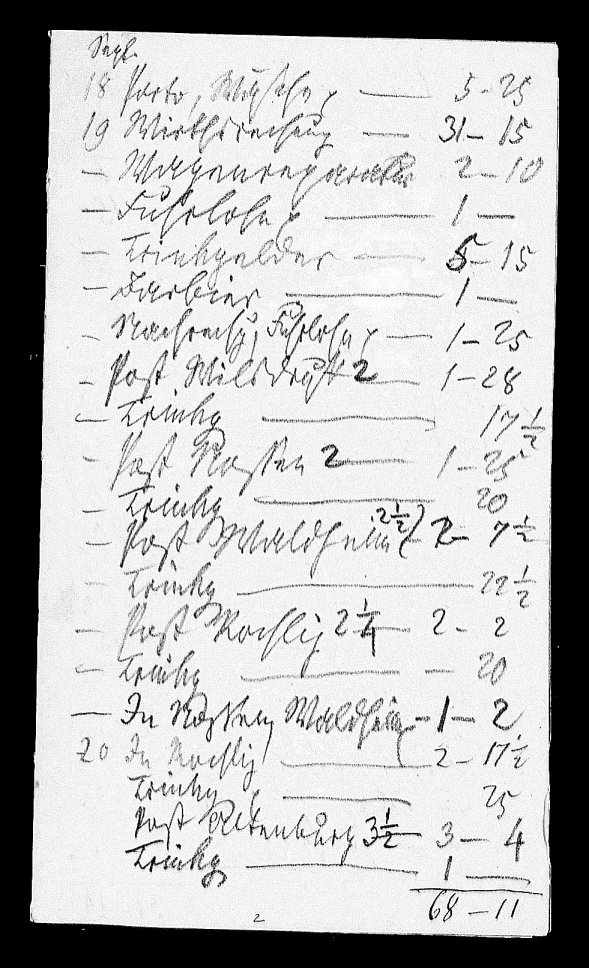 Sept.
18 Porto, Wäsche — 5 - 25
19 Wirthsrechnung — 31 - 15
— Wagenreparatur 2 - 10
— Fuhrlohn — 1 —
— Trinkgelder — 5 - 15
— Barbier — 1 —
— Fuhrlohn — 1 - 25
— Post Wilsdruff 2 — 1 - 28
— Trinkg — 17 1/2
— Post Nossen 2 — 1 - 25
— Trinkg — 20
— Post Waldheim 2 1/2) - 2 - 7 1/2
— Trinkg — 22 1/2
— Post Rochlitz 2 1/4 — 2 - 2
— Trinkg — 20
— In Nossen, Waldheim - 1 - 2
20 In Rochlitz — 2 - 17 1/2
Trinkg — 25
Post Altenburg 3 1/2 — 3 - 4
Trinkg — 1 —
68 - 11
2